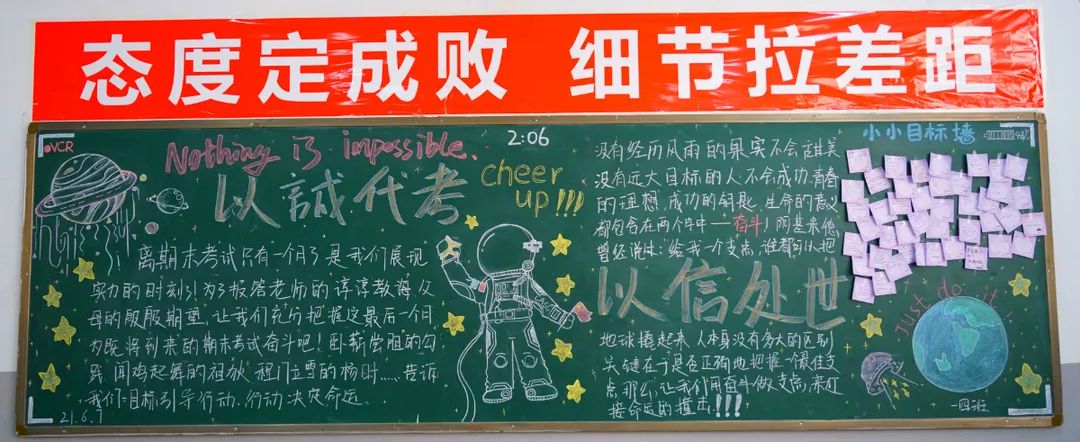 态度定成败 细节拉差距
VCR
Nothing is impossible.
以誠代考
离期末考试只有一个月了是我们展现
实力的时刻引为了报答老师的谆谆教诲父
母的殷殷期望,让我们充分把握这最后一个月
为既将到来的期末考试奋斗吧!卧薪尝胆的勾
践,闻鸡起舞的祖狄,程门立雪的杨时……告诉
我们:目标引导行动,行动决定命运.
21.6.7
2:06
cheer
up!!!
没有经历风雨的果实不会甜美
没有远大目标的人不会成功.青春
的理想,成功的钥匙,生命的意义
都包含在两个字中——奋斗!阿基米德
曾经说过:给我一个支点,谁都可以把
以信处世
地球撬起来,人本身没有多大的区别
关键在于是否正确地把握一个最佳支
点,那么,让我们用奋斗做支点,来迎
接命运的撞击!!!
小小目标墙
Just do it!
一四班